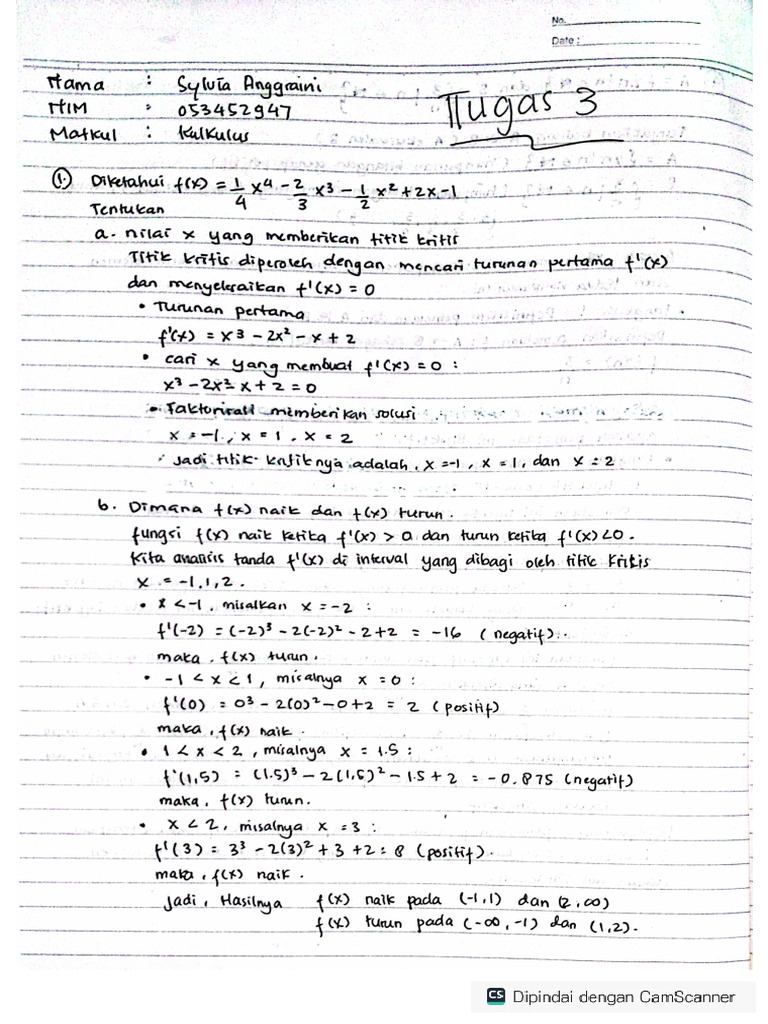 No.
Date :
Nama : Sylvia Anggraini
NIM : 053452947
Matkul : Kalkulus
Tugas 3
1. Diketahui f(x) = 1/4 x⁴ - 2/3 x³ - 1/2 x² + 2x - 1
Tentukan
a. nilai x yang memberikan titik kritis
Titik kritis diperoleh dengan mencari turunan pertama f'(x)
dan menyelesaikan f'(x) = 0
• Turunan pertama
f'(x) = x³ - 2x² - x + 2
• cari x yang membuat f'(x) = 0 :
x³ - 2x² - x + 2 = 0
• Faktorisasi memberikan solusi
x = -1, x = 1, x = 2
• Jadi titik kritiknya adalah, x = -1, x = 1, dan x = 2
b. Dimana f(x) naik dan f(x) turun.
fungsi f(x) naik ketika f'(x) > 0 dan turun ketika f'(x) < 0.
Kita analisis tanda f'(x) di interval yang dibagi oleh titik kritis
x = -1, 1, 2.
• x < -1, misalkan x = -2 :
f'(-2) = (-2)³ - 2(-2)² - 2 + 2 = -16 (negatif).
maka, f(x) turun.
• -1 < x < 1, misalnya x = 0 :
f'(0) = 0³ - 2(0)² - 0 + 2 = 2 (positif)
maka, f(x) naik.
• 1 < x < 2, misalnya x = 1.5 :
f'(1,5) = (1.5)³ - 2(1,5)² - 1.5 + 2 = -0.875 (negatif)
maka, f(x) turun.
• x < 2, misalnya x = 3 :
f'(3) = 3³ - 2(3)² + 3 + 2 = 8 (positif).
maka, f(x) naik.
Jadi, Hasilnya f(x) naik pada (-1,1) dan (2,∞)
f(x) turun pada (-∞,-1) dan (1,2).
CS Dipindai dengan CamScanner